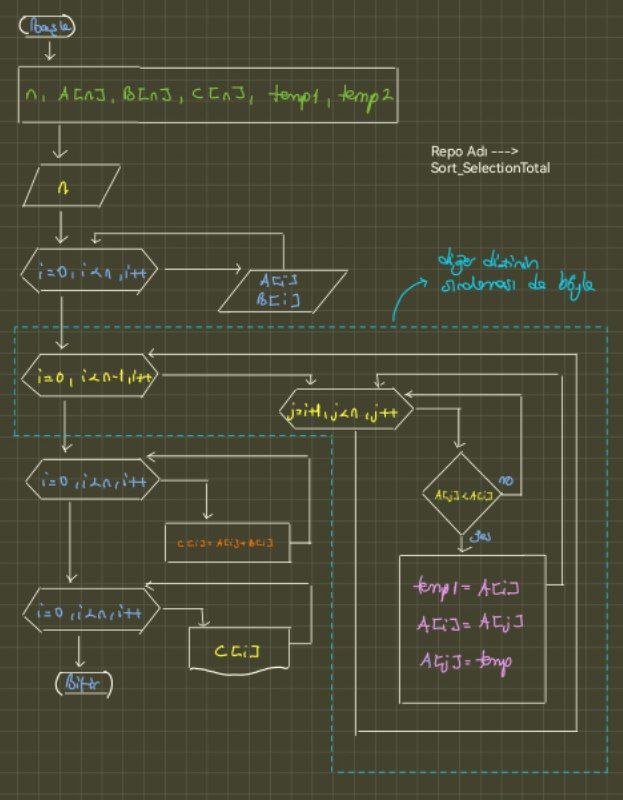 Başla
n, A[n], B[n], C[n], temp1, temp2
Repo Adı --->
Sort_SelectionTotal
n
i=0, i<n, i++
A[i]
B[i]
diğer dizinin
sıralaması da böyle
i=0, i<n-1, i++
j=i+1, j<n, j++
A[j]<A[i]
no
yes
temp1 = A[i]
A[i] = A[j]
A[j] = temp
i=0, i<n, i++
C[i] = A[i]+B[i]
i=0, i<n, i++
C[i]
Bitir